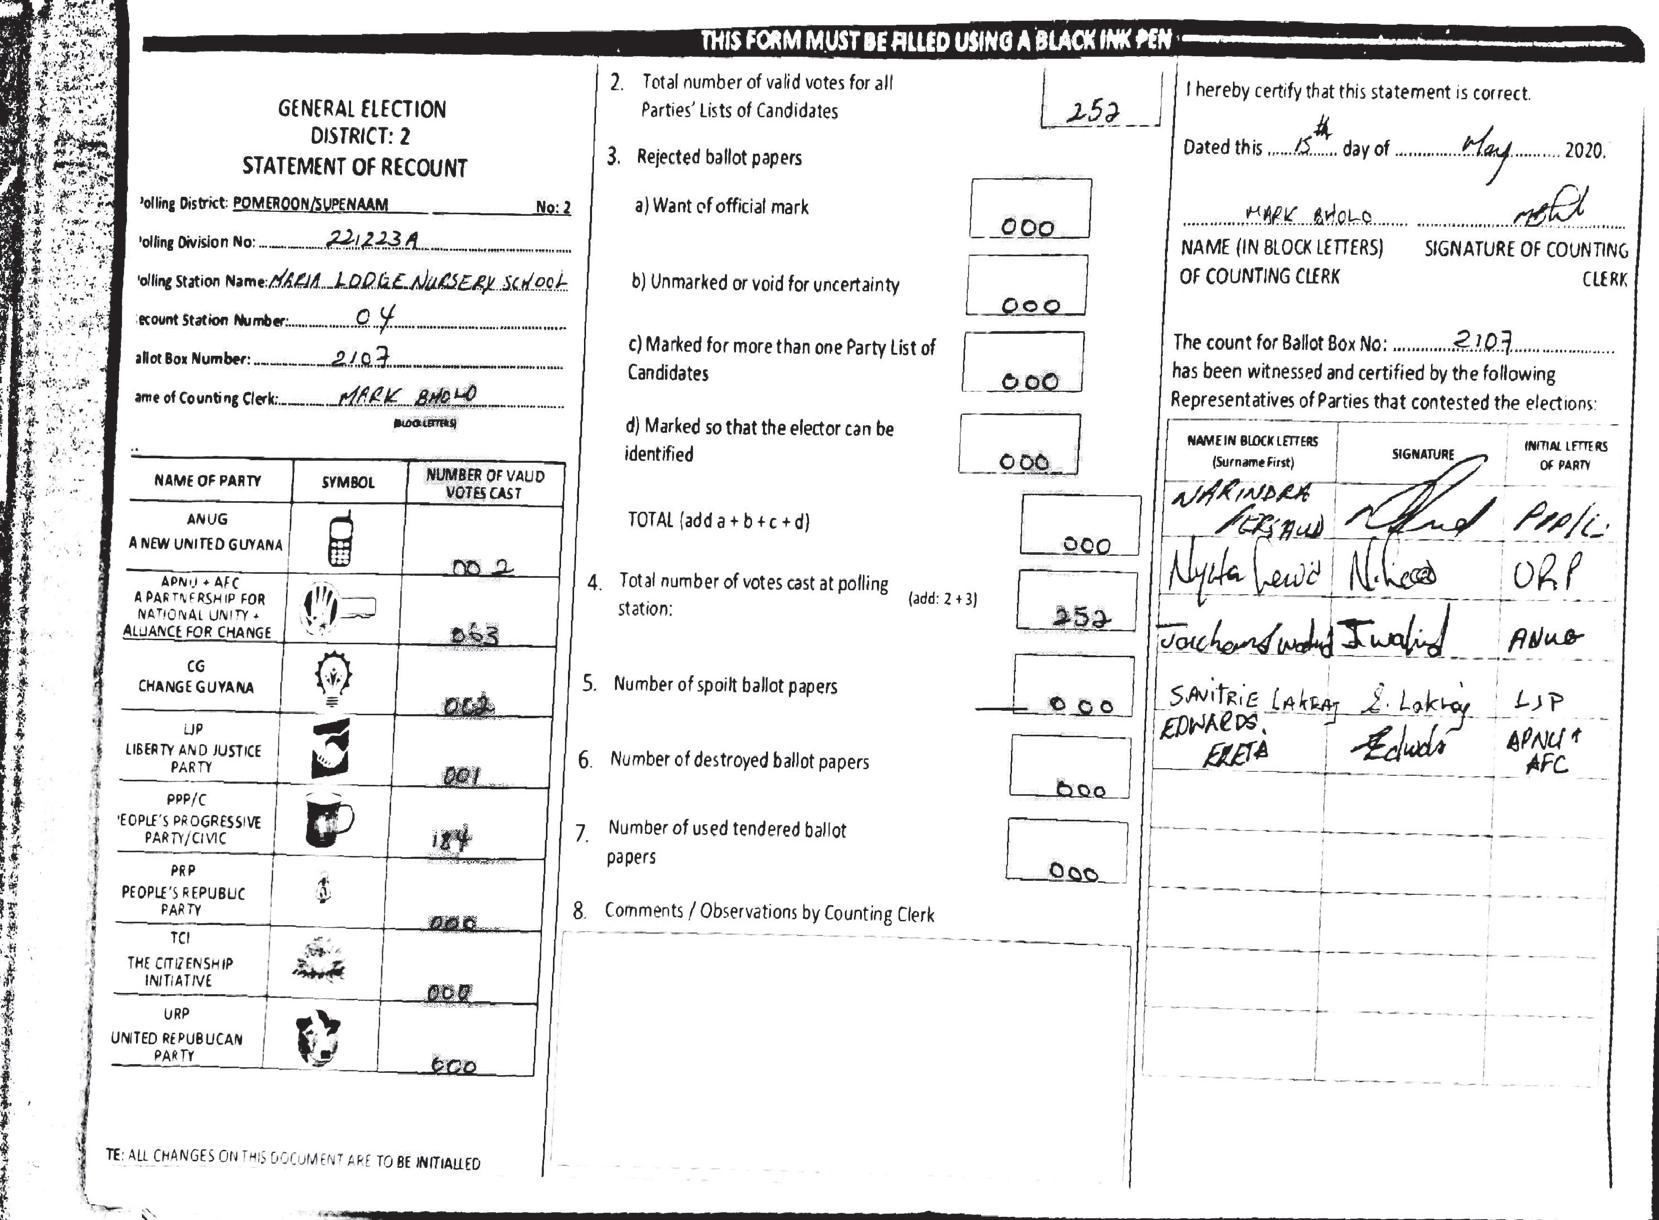 THIS FORM MUST BE FILLED USING A BLACK INK PEN
GENERAL ELECTION
DISTRICT: 2
STATEMENT OF RECOUNT
olling District: POMEROON/SUPENAAM No: 2
olling Division No: 221223A
olling Station Name: MARIA LODGE NURSERY SCHOOL
ecount Station Number: 04
allot Box Number: 2107
ame of Counting Clerk: MARK BHOLO
(BLOCK LETTERS)
NAME OF PARTY SYMBOL NUMBER OF VALID VOTES CAST
ANUG
A NEW UNITED GUYANA
002
APNU + AFC
A PARTNERSHIP FOR
NATIONAL UNITY +
ALLIANCE FOR CHANGE
063
CG
CHANGE GUYANA
002
LJP
LIBERTY AND JUSTICE
PARTY
001
PPP/C
EOPLE'S PROGRESSIVE
PARTY/CIVIC
184
PRP
PEOPLE'S REPUBLIC
PARTY
000
TCI
THE CITIZENSHIP
INITIATIVE
000
URP
UNITED REPUBLICAN
PARTY
000
TE: ALL CHANGES ON THIS DOCUMENT ARE TO BE INITIALLED
2. Total number of valid votes for all
Parties' Lists of Candidates
252
3. Rejected ballot papers
a) Want of official mark
000
b) Unmarked or void for uncertainty
000
c) Marked for more than one Party List of
Candidates
000
d) Marked so that the elector can be
identified
000
TOTAL (add a + b + c + d)
000
4. Total number of votes cast at polling
station: (add: 2 + 3)
252
5. Number of spoilt ballot papers
000
6. Number of destroyed ballot papers
000
7. Number of used tendered ballot
papers
000
8. Comments / Observations by Counting Clerk
I hereby certify that this statement is correct.
Dated this 15th day of May 2020.
MARK BHOLO
NAME (IN BLOCK LETTERS) SIGNATURE OF COUNTING
OF COUNTING CLERK CLERK
The count for Ballot Box No: 2107
has been witnessed and certified by the following
Representatives of Parties that contested the elections:
NAME IN BLOCK LETTERS SIGNATURE INITIAL LETTERS
(Surname First) OF PARTY
NARINDRA
PERSAUD PPP/C
URP
ANUG
SAVITRIE LAKRAJ S. Lakraj LJP
EDWARDS, APNU +
ERETA Edwards AFC